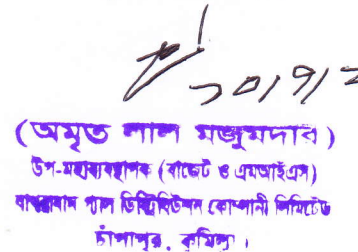 ২০/৭/২
(অমৃত লাল মজুমদার)
উপ-মহাব্যবস্থাপক (বাজেট ও এমআইএস)
বাখরাবাদ গ্যাস ডিস্ট্রিবিউশন কোম্পানী লিমিটেড
চাঁপাপুর, কুমিল্লা।